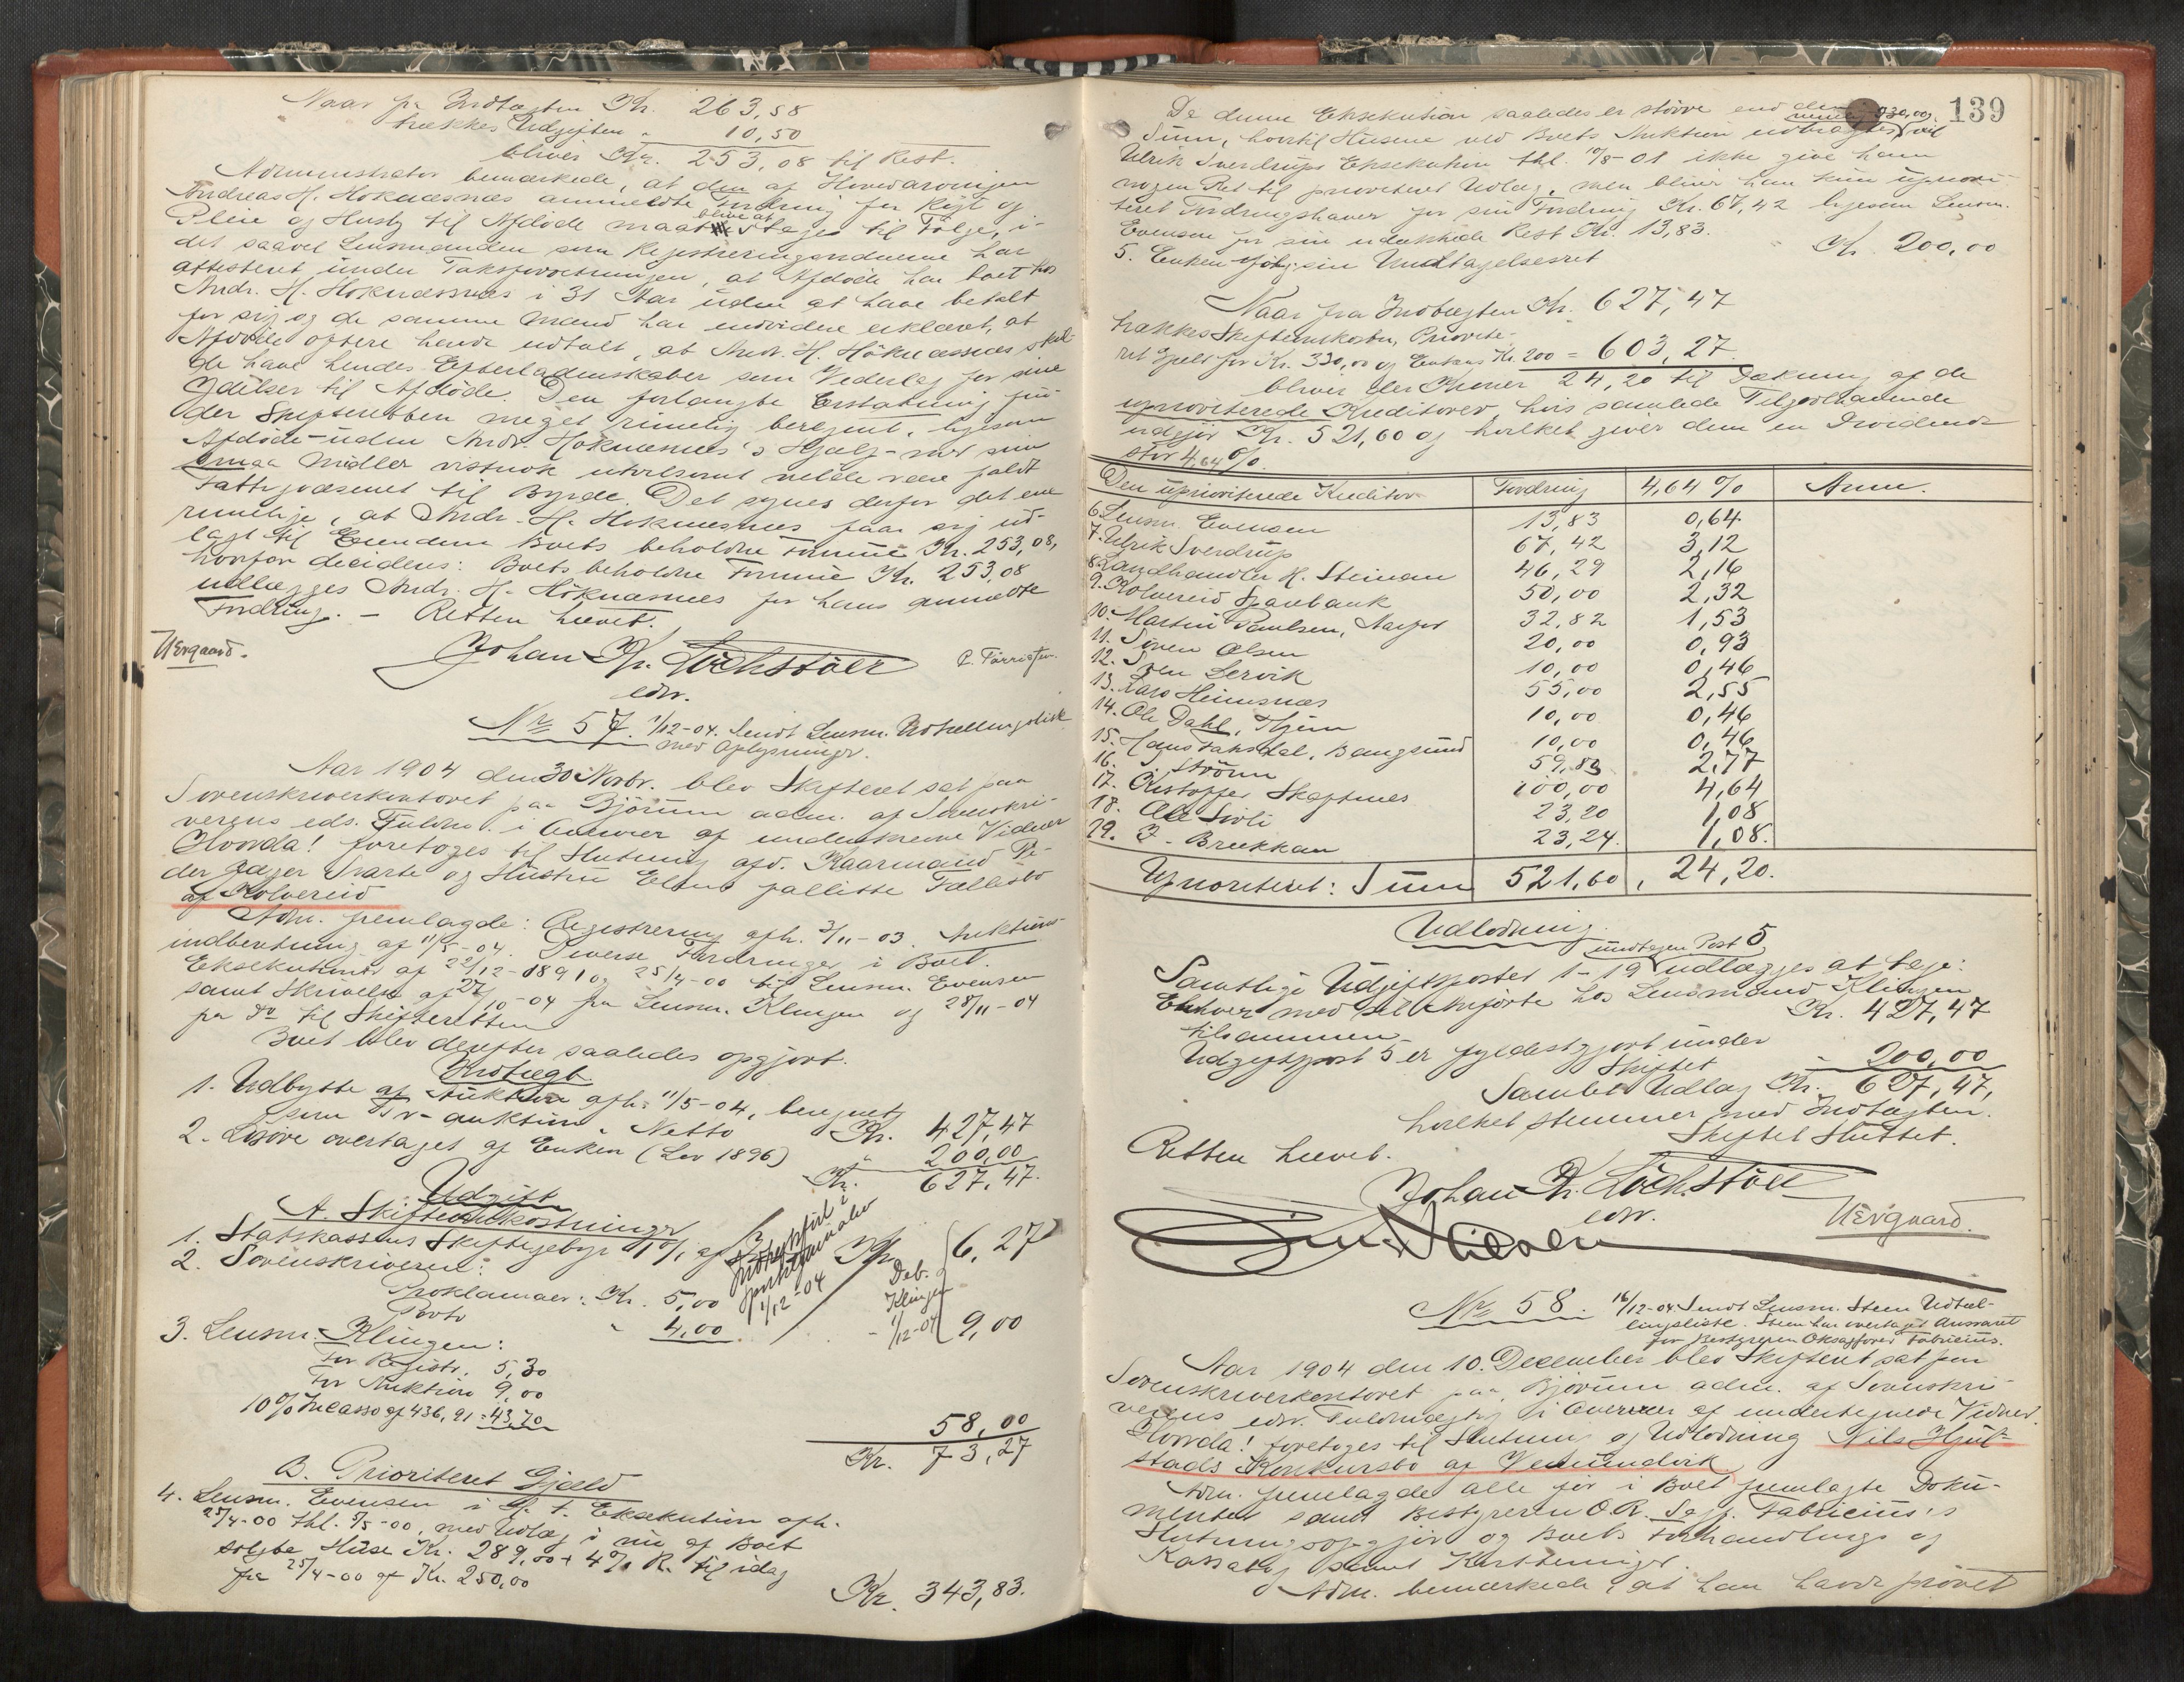 Naar fra Indtægten Kr. 263,58
trækkes Udgiften " 10,50
bliver Kr. 253,08 til Rest.
Administrator bemærkede, at den af Hovedarvingen
Andreas H. Hoknæsnæs anmeldte Fordring for Røgt og
Pleie og Husly til Afdøde maatte blive at tages til Følge, i-
det saavel Lensmanden som Registreringsvidnerne har
attesteret under Taksforretningen, at Afdøde har boet hos
Andr. H. Hoknæsnæs i 31 Aar uden at have betalt
for sig og de samme Mænd har endvidere erklæret, at
Afdøde oftere havde udtalt, at Andr. H. Höknæsnæs skul-
de have hendes Efterladenskaber som Vederlag for sine
Ydelser til Afdöde. Den forlangte Erstatning fin-
der Skifteretten meget rimelig beregnet, ligesom
Afdöde uden Andr. Hoknæsnæs's Hjælp - med sine
smaa Midler vistnok utvilsomt vilde være faldt
Fattigvæsenet til Byrde. Det synes derfor det ene
rimelige, at Andr. H. Hoknæsnæs faar sig ud-
lagt til Eiendom Boets beholdne Formue Kr. 253,08,
hvorfor decideres: Boets beholdne Formue Kr. 253,08
udlægges Andr. H. Höknæsnæs for hans anmeldte
Fordring. - Retten hævet.
Johan Kr. Löchstöer
edv.
Nr 57. 1/12-04. Sendt Lensm. Udtællingsliste
med Oplysninger.
Aar 1904 den 30 Novbr. blev Skifteret sat paa
Sorenskriverkontoret paa Björum adm. af Sorenskri-
verens eds. Fuldm. i Overvær af underskrevne Vidner
Hvorda! foretoges til Slutning afd. Kaarmand Pe-
der Jager Svarte og Hustru Elens fallitte Fællesbo
af Kolvereid
Adm. fremlagde: Registrering afh. 3/11-03. Auktions-
indberetning af 11/5-04. Diverse Fordringer i Boet.
Eksekutioner af 22/12-1891 og 25/4-00 til Lensm. Evensen
samt Skrivelse af 27/10-04 fra Lensm. Klingen og 28/11-04
fra Do til Skifteretten
Boet blev derefter saaledes opgjort.
Indtægt
1. Udbytte af Auktion afh. 11/5-04, beregnet
som Tv-auktion. Netto Kr. 427,47
2. Løsøre overtaget af Enken (Lov 1896) " 200,00
Kr. 627,47.
Udgift
A. Skifteomkostninger
1. Statskassens Skiftegebyr 1% af Kr. 6,27
2. Sorenskriveren:
Proklamaer: Kr. 5,00
Porto " 4,00 9,00
1/12-04
Deb.
Klingen
1/12-04
3. Lensm. Klingen:
For Registr. 5,30
For Auktion 9,00
10% Incasso af 436,91 = 43,70
58,00
Kr. 73,27
B. Prioriteret Gjæld
4. Lensm. Evensen i H. t. Eksekution afh.
25/4-00 thl. 5/5-00, med Udlæg i nu af Boet
solgte Huse Kr. 289,00 + 4% R. til idag
fra 25/4-00 af Kr. 250,00
Kr. 343,83.
139
Da denne Eksekution saaledes er større end den
Sum, hvortil Husene ved Boets Auktion udbragtes nemlig 330,00, vil
Ulrik Sverdrups Eksekution thl. 10/8-01 ikke give ham
nogen Ret til prioriteret Udlæg, men bliver han kun uprori-
teret Fordringshaver for sin Fordring Kr. 67,42 ligesom Lensm.
Evensen for sin udækkede Rest Kr. 13,83.
5. Enken ifølg. sin Undtagelsesret " Kr. 200,00
Naar fra Indtægten Kr. 627,47
trækkes Skifteomkostn., Priorite-
ret Gjæld for Kr. 330,00 og Enkens Kr. 200 = 603,27.
bliver der Kroner 24,20 til Dækning af de
uprioriterede Kreditorer, hvis samlede Tilgodehavende
udgjør Kr. 521,60 og hvilket giver dem en Dividende
stor 4,64%.
Den uprioriterede Kreditor Fordring 4,64 % Anm.
6. Lensm. Evensen 13,83 0,64
7. Ulrik Sverdrup 67,42 3,12
8. Landhandler H. Steinan 46,29 2,16
9. Kolvereid Sparebank 50,00 2,32
10. Martin Paulsen, 32,82 1,53
11. Søren Olsen 20,00 0,93
12. Lervik 10,00 0,46
13. Lars Heimsnæs 55,00 2,55
14. Ole Dahl, 10,00 0,46
15. Hans Faksdal, Bangsund 10,00 0,46
16. Strøm 59,83 2,77
17. Kristoffer Skaftnes 100,00 4,64
18. Ole Sivli 23,20 1,08
19. J. Brækkan 23,24. 1,08.
Uprioriteret: Sum 521,60, 24,20.
Udlodning.
Samtlige Udgiftsposter 1-19 undtagen Post 5, udlægges at tage:
Enhver med det anførte hos Lensmand Klingen
tilsammen Kr. 427,47
Udgiftspost 5 er fyldestgjort under
Skiftet " 200,00
Samlet Udlæg Kr. 627,47,
hvilket stemmer med Indtægten.
Skiftet Sluttet.
Retten hævet.
Johan Kr. Löchstöer
edv.
Nr 58. 16/12-04. Sendt Lensm. Steen Udtæl-
lingsliste. Steen har overtaget Ansvaret
for Bestyreren Oksagfører Fabricius.
Aar 1904 den 10. December blev Skifteret sat paa
Sorenskriverkontoret paa Björum adm. af Sorenskri-
verens edv. Fuldmægtig i Overvær af undertegnede Vidner.
Hvorda! foretoges til Slutning og Udlodning Nils Hjul-
stads Konkursbo af Vemundvik
Adm. fremlagde alle før i Boet fremlagte Doku-
menter samt Bestyreren O.R. Sagf. Fabricius's
Slutningsopgjør og Boets Forhandlings og
Kassabog samt Kvitteringer.
Adm. bemærkede, at han havde prøvet